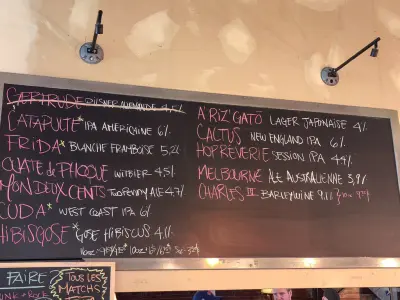 GERTRUDE PILSNER ALLEMANDE 4,5%
CATAPULTE* IPA AMÉRICAINE 6%
FRIDA* BLANCHE FRAMBOISE 5,2%
OUATE de PHOQUE WITBIER 4.5%
MON DEUX CENTS TWOPENNY ALE 4.7%
CUDA* WEST COAST IPA 6%
HIBISGOSE* GOSE HIBISCUS 4.1%
A'RIZ'GATÔ LAGER JAPONAISE 4%
CACTUS NEW ENGLAND IPA 6%
HOPRÊVERIE SESSION IPA 4.4%
MELBOURNE ALE AUSTRALIENNE 3,9%
CHARLES III BARLEYWINE 9.1%
FAIRE
TOUS LES
MATCHS